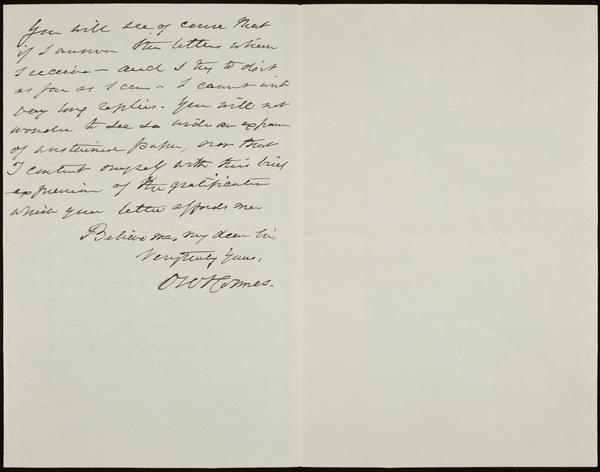 You will see of course that
if I answer the letters which
I receive – and I try to do it
as far as I can – I cannot write
very long replies. You will not
wonder to see so wide an expanse
of unstained paper, nor that
I content myself with this brief
expression of the gratification
which your letter affords me
Believe me, my dear Sir,
Very truly Yours,
O W Holmes.